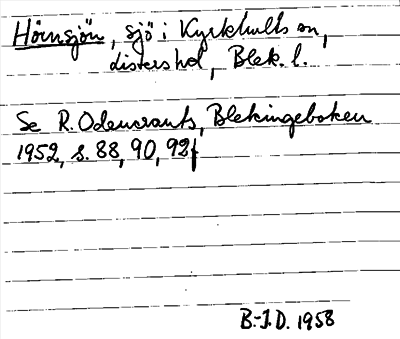 Hörnsjön, sjö i Kyrkhults sn,
Listers hd, Blek. l.
Se R. Odencrants, Blekingeboken
1952, s. 88, 90, 92f
B.-I.D. 1958